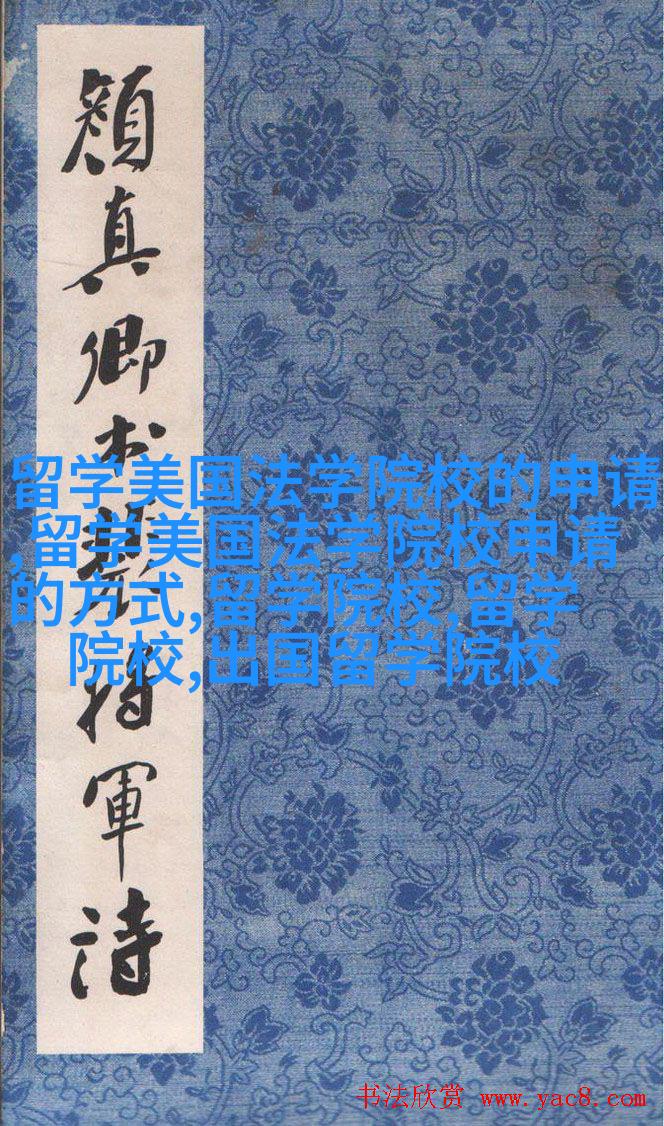 顔真卿书裴将軍詩
留学美国法学院校的申请
,留学美国法学院校申请
的方式,留学院校,留学
院校,出国留学院校
书法欣赏 www.yac8.com